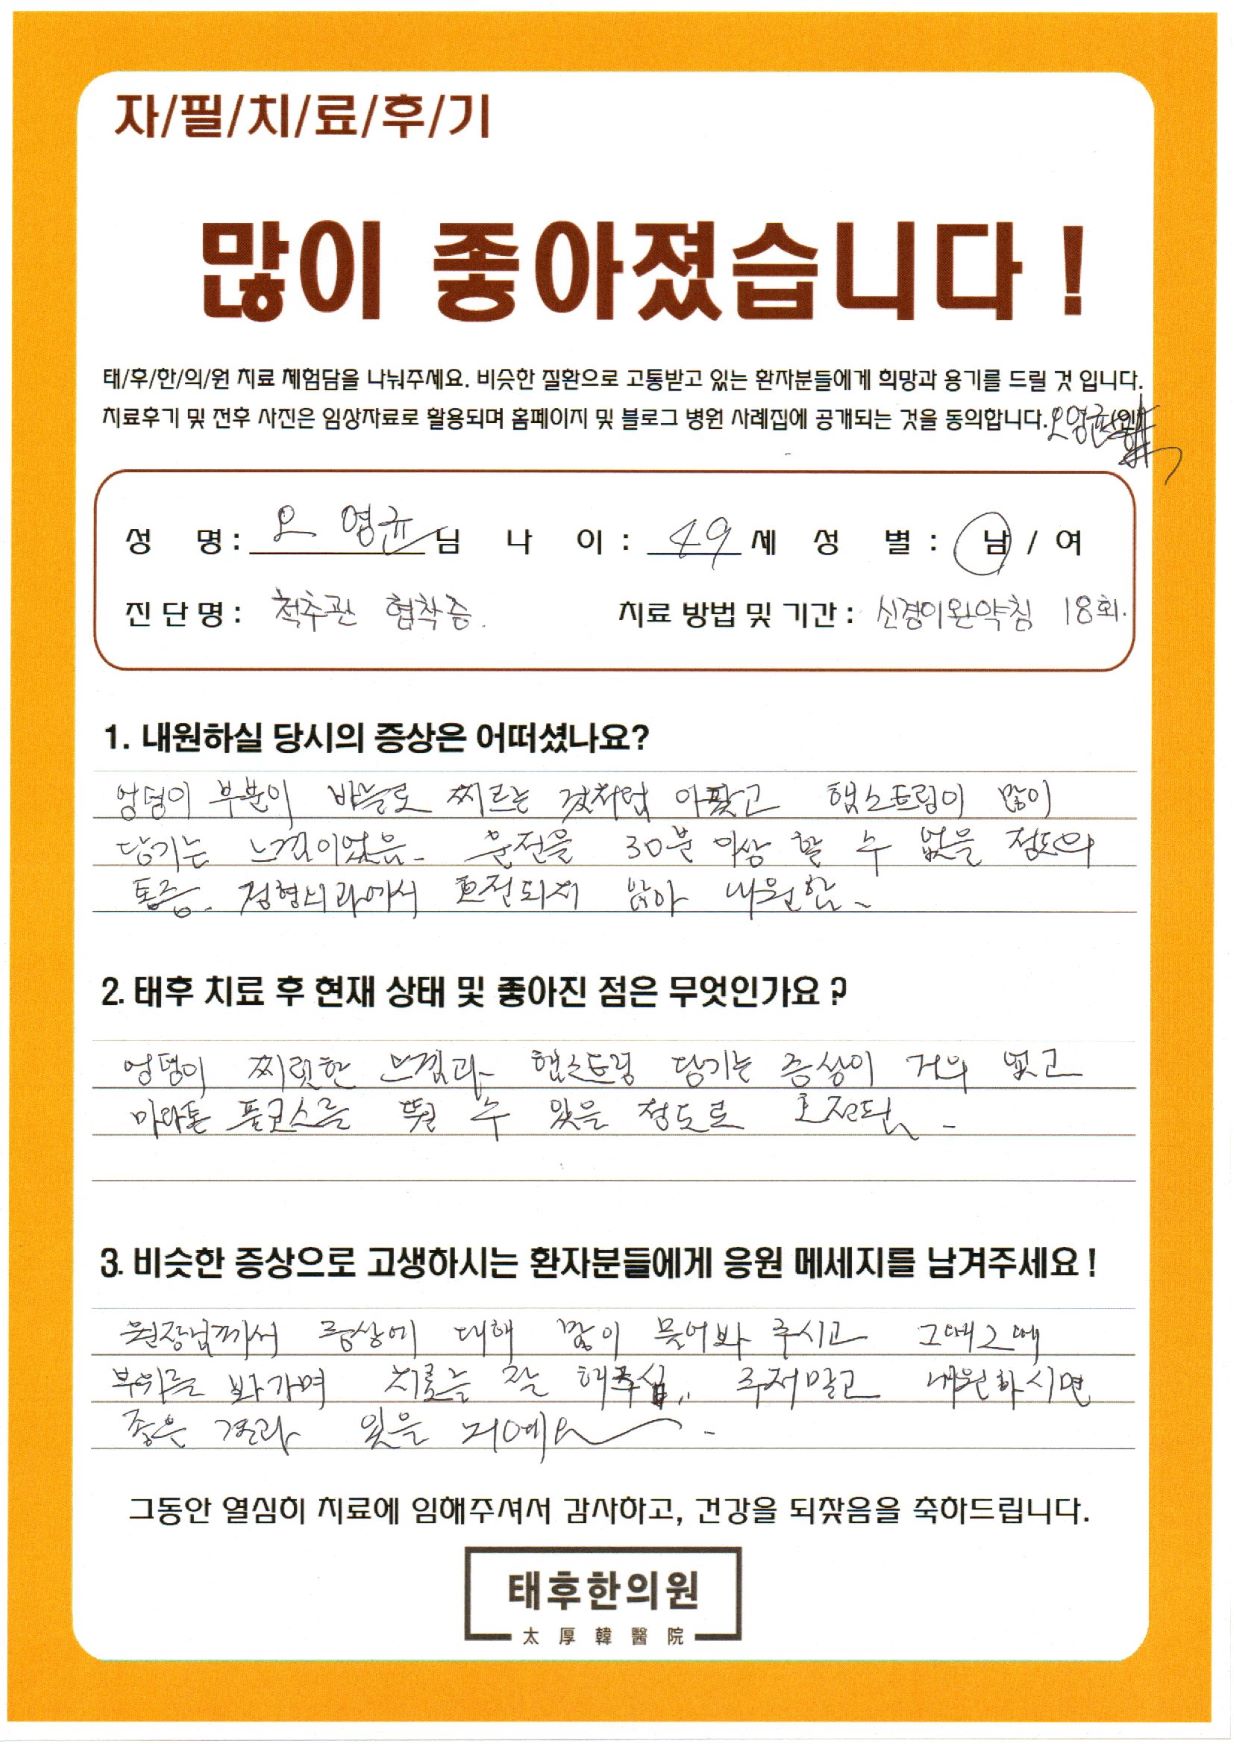 자/필/치/료/후/기
많이 좋아졌습니다 !
태/후/한/의/원 치료 체험담을 나눠주세요. 비슷한 질환으로 고통받고 있는 환자분들에게 희망과 용기를 드릴 것 입니다.
치료후기 및 전후 사진은 임상자료로 활용되며 홈페이지 및 블로그 병원 사례집에 공개되는 것을 동의합니다. 오영균
성 명 : 오 영균 님 나 이 : 49 세 성 별 : 남 / 여
진 단 명 : 척추관 협착증. 치료 방법 및 기간 : 신경이완약침 18회.
1. 내원하실 당시의 증상은 어떠셨나요?
엉덩이 부분이 바늘로 찌르는 것처럼 아팠고 햄스트링이 많이
당기는 느낌이었음. 운전을 30분 이상 할 수 없을 정도의
통증. 정형외과에서 호전되지 않아 내원함.
2. 태후 치료 후 현재 상태 및 좋아진 점은 무엇인가요 ?
엉덩이 찌릿한 느낌과 햄스트링 당기는 증상이 거의 없고
마라톤 풀코스를 뛸 수 있을 정도로 호전됨.
3. 비슷한 증상으로 고생하시는 환자분들에게 응원 메세지를 남겨주세요 !
원장님께서 증상에 대해 많이 물어봐 주시고 그때그때
부위를 봐가며 치료를 잘 해주심. 주저말고 내원하시면
좋은 결과 있을 거예요.
그동안 열심히 치료에 임해주셔서 감사하고, 건강을 되찾음을 축하드립니다.
태후한의원
太 厚 韓 醫 院